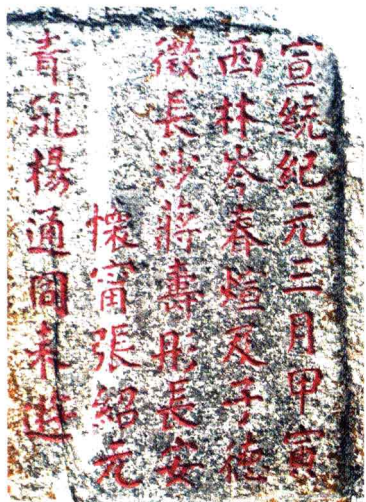 宣統紀元三月甲寅
西林岑春煊及子德
徵長沙蔣壽彤長安
懷甯張紹元
青﨑楊通同來遊